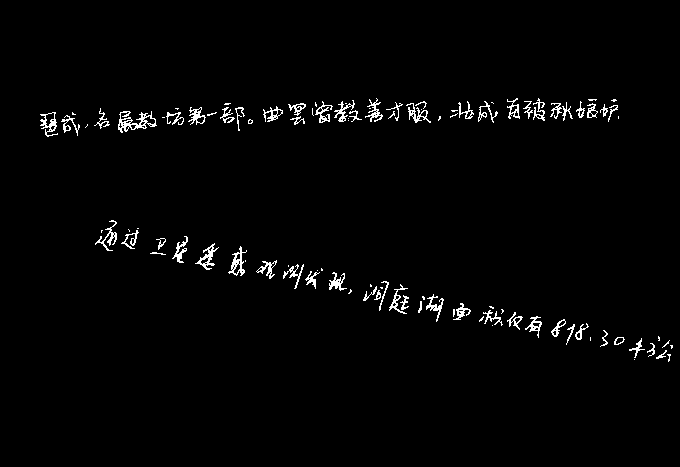 琶成,名属教坊第一部。曲罢曾教善才服,妆成每被秋娘妒
通过卫星遥感观测发现,洞庭湖面积仅有898.30平方公